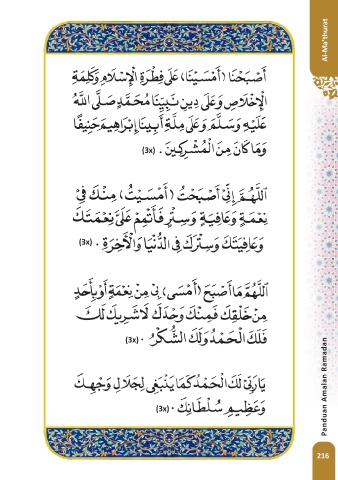 Al-Ma'thurat
أَصْبَحْنَا (أَمْسَيْنَا) عَلَى فِطْرَةِ الْإِسْلَامِ وَكَلِمَةِ
الْإِخْلَاصِ وَعَلَى دِينِ نَبِيِّنَا مُحَمَّدٍ صَلَّى اللَّهُ
عَلَيْهِ وَسَلَّمَ وَعَلَى مِلَّةِ أَبِينَا إِبْرَاهِيمَ حَنِيفًا
وَمَا كَانَ مِنَ الْمُشْرِكِينَ . (3x)
اَللَّهُمَّ إِنِّي أَصْبَحْتُ (أَمْسَيْتُ) مِنْكَ فِي
نِعْمَةٍ وَعَافِيَةٍ وَسِتْرٍ فَأَتِمَّ عَلَيَّ نِعْمَتَكَ
وَعَافِيَتَكَ وَسِتْرَكَ فِى الدُّنْيَا وَالْأٓخِرَةِ . (3x)
اَللَّهُمَّ مَا أَصْبَحَ (أَمْسَى) بِيْ مِنْ نِعْمَةٍ أَوْ بِأَحَدٍ
مِنْ خَلْقِكَ فَمِنْكَ وَحْدَكَ لَا شَرِيكَ لَكَ
فَلَكَ الْحَمْدُ وَلَكَ الشُّكْرُ . (3x)
يَارَبِّيْ لَكَ الْحَمْدُ كَمَا يَنْبَغِى لِجَلَالِ وَجْهِكَ
وَعَظِيمِ سُلْطَانِكَ . (3x)
Panduan Amalan Ramadan
216